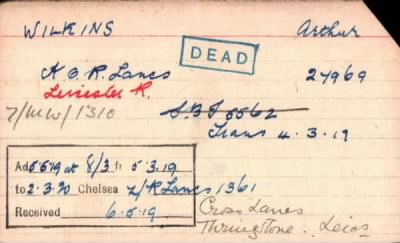 WILKINS Arthur
DEAD
K. O. R. Lancs 27969
Leicester R.
7/MW/1310 S.B.J 5562
Trans 4.3.19
Ad 5.5.19 at 8/3 fr 5.3.19
to 2.3.20 Chelsea 7/R Lancs 1361
Received 6.5.19
Cross Lanes
Thringstone. Leics